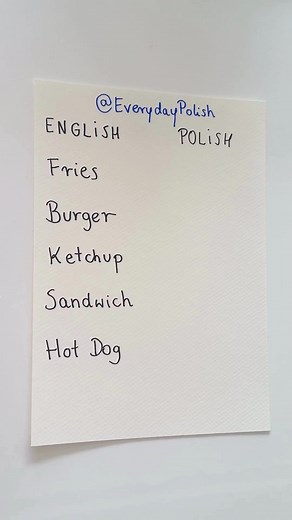 @EverydayPolish
ENGLISH POLISH
Fries
Burger
Ketchup
Sandwich
Hot Dog